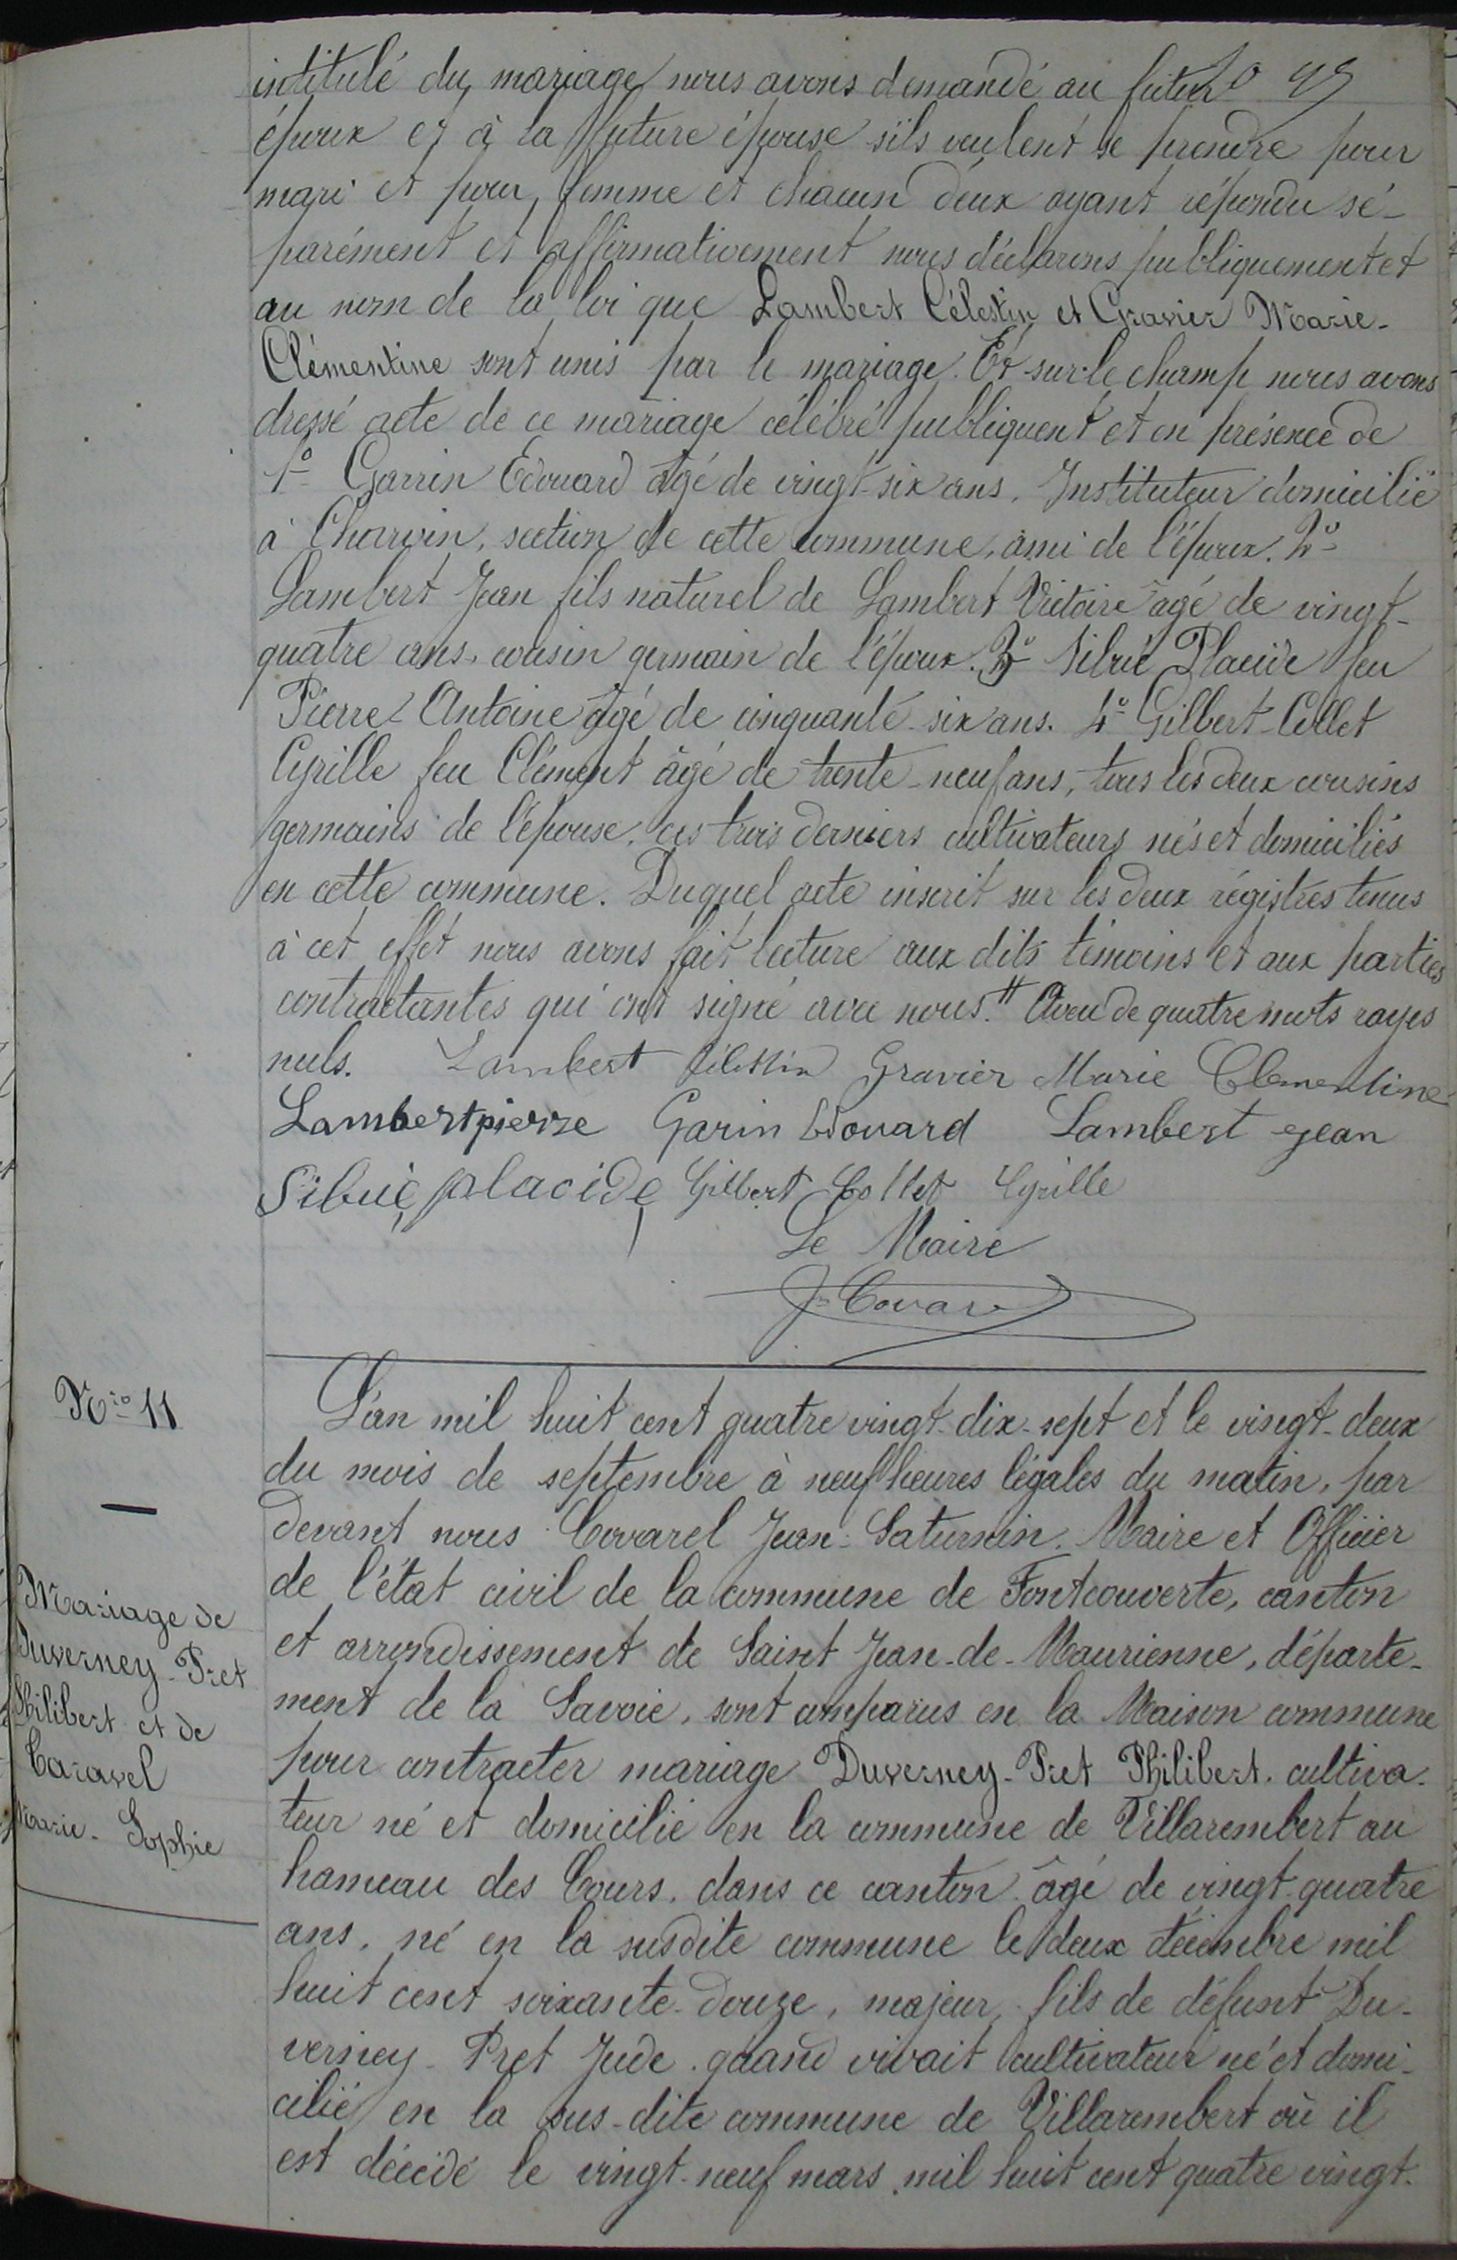 intitulé du mariage nous avons demandé au futur
époux et à la future épouse s'ils veulent se prendre pour
mari et pour femme et chacun d'eux ayant répondu sé-
parément et affirmativement nous déclarons publiquement et
au nom de la loi que Lambert Célestin et Gravier Marie-
Clémentine sont unis par le mariage. Et sur-le champ nous avons
dressé acte de ce mariage célébré publiquent et en présence de
1º Garrin Edouard âgé de vingt-six ans, Instituteur domicilié
à Charvin, section de cette commune, ami de l'époux. 2º
Lambert Jean fils naturel de Lambert Victoire âgé de vingt-
quatre ans, cousin germain de l'époux. 3º Sibué Placide feu
Pierre-Antoine âgé de cinquante-six ans. 4º Gilbert-Collet
Cyrille feu Clément âgé de trente-neuf ans, tous les deux cousins
germains de l'épouse, ces trois derniers cultivateurs nés et domiciliés
en cette commune. Duquel acte inscrit sur les deux régistres tenus
à cet effet nous avons fait lecture aux dits témoins et aux parties
contractantes qui ont signé avec nous. # Aveu de quatre mots rayés
nuls. Lambert Célestin Gravier Marie Clementine
Lambert pierre Garin Edouard Lambert jean
Sibué placide Gilbert Collet Cyrille
Le Maire
J. Covarel
Nro 11
Mariage de
Duverney-Pret
Philibert et de
Caravel
Marie-Sophie
L'an mil huit cent quatre vingt-dix-sept et le vingt-deux
du mois de septembre à neuf heures légales du matin, par
devant nous Covarel Jean-Saturnin, Maire et Officier
de l'état civil de la commune de Fontcouverte, canton
et arrondissement de Saint Jean-de-Maurienne, départe-
ment de la Savoie, sont comparus en la Maison commune
pour contracter mariage Duverney-Pret Philibert, cultiva-
teur né et domicilié en la commune de Villarembert au
hameau des Cours, dans ce canton âgé de vingt-quatre
ans, né en la susdite commune le deux décembre mil
huit cent soixante-douze, majeur, fils de défunt Du-
verney-Pret Jude quand vivait cultivateur né et domi-
cilié en la sus-dite commune de Villarembert où il
est décédé le vingt-neuf mars mil huit cent quatre vingt-